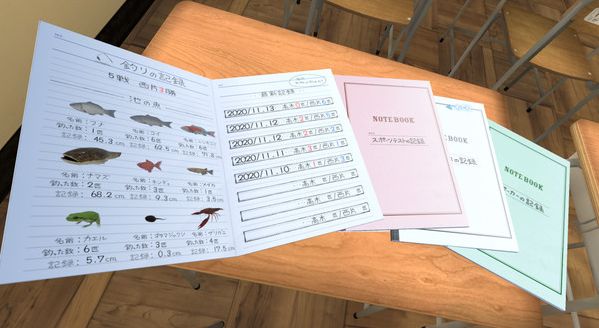 釣りの記録
5戦 西片3勝
池の魚
名前:フナ
釣った数:1匹
記録:45.3cm
名前:コイ
釣った数:6匹
記録:62.5cm
釣った数:6匹
記録:71.3cm
名前:ナマズ
釣った数:2匹
記録:68.2cm
名前:キンギョ
釣った数:3匹
記録:9.3cm
名前:メダカ
釣った数:1匹
記録:3.5cm
名前:カエル
釣った数:6匹
記録:5.7cm
名前:オタマジャクシ
釣った数:3匹
記録:0.3cm
名前:ザリガニ
釣った数:4匹
記録:17.5cm
最新記録
2020/11.13 高木0匹/西片6匹
2020/11.12 高木2匹/西片5匹
2020/11.12 高木2匹/西片6匹
2020/11.11 高木1匹/西片3匹
2020/11.10 高木1匹/西片3匹
高木 匹/西片 匹
高木 匹/西片 匹
高木 匹/西片 匹
NOTEBOOK
スポーツテストの記録
BOOK
の記録
NOTEBOOK
の記録